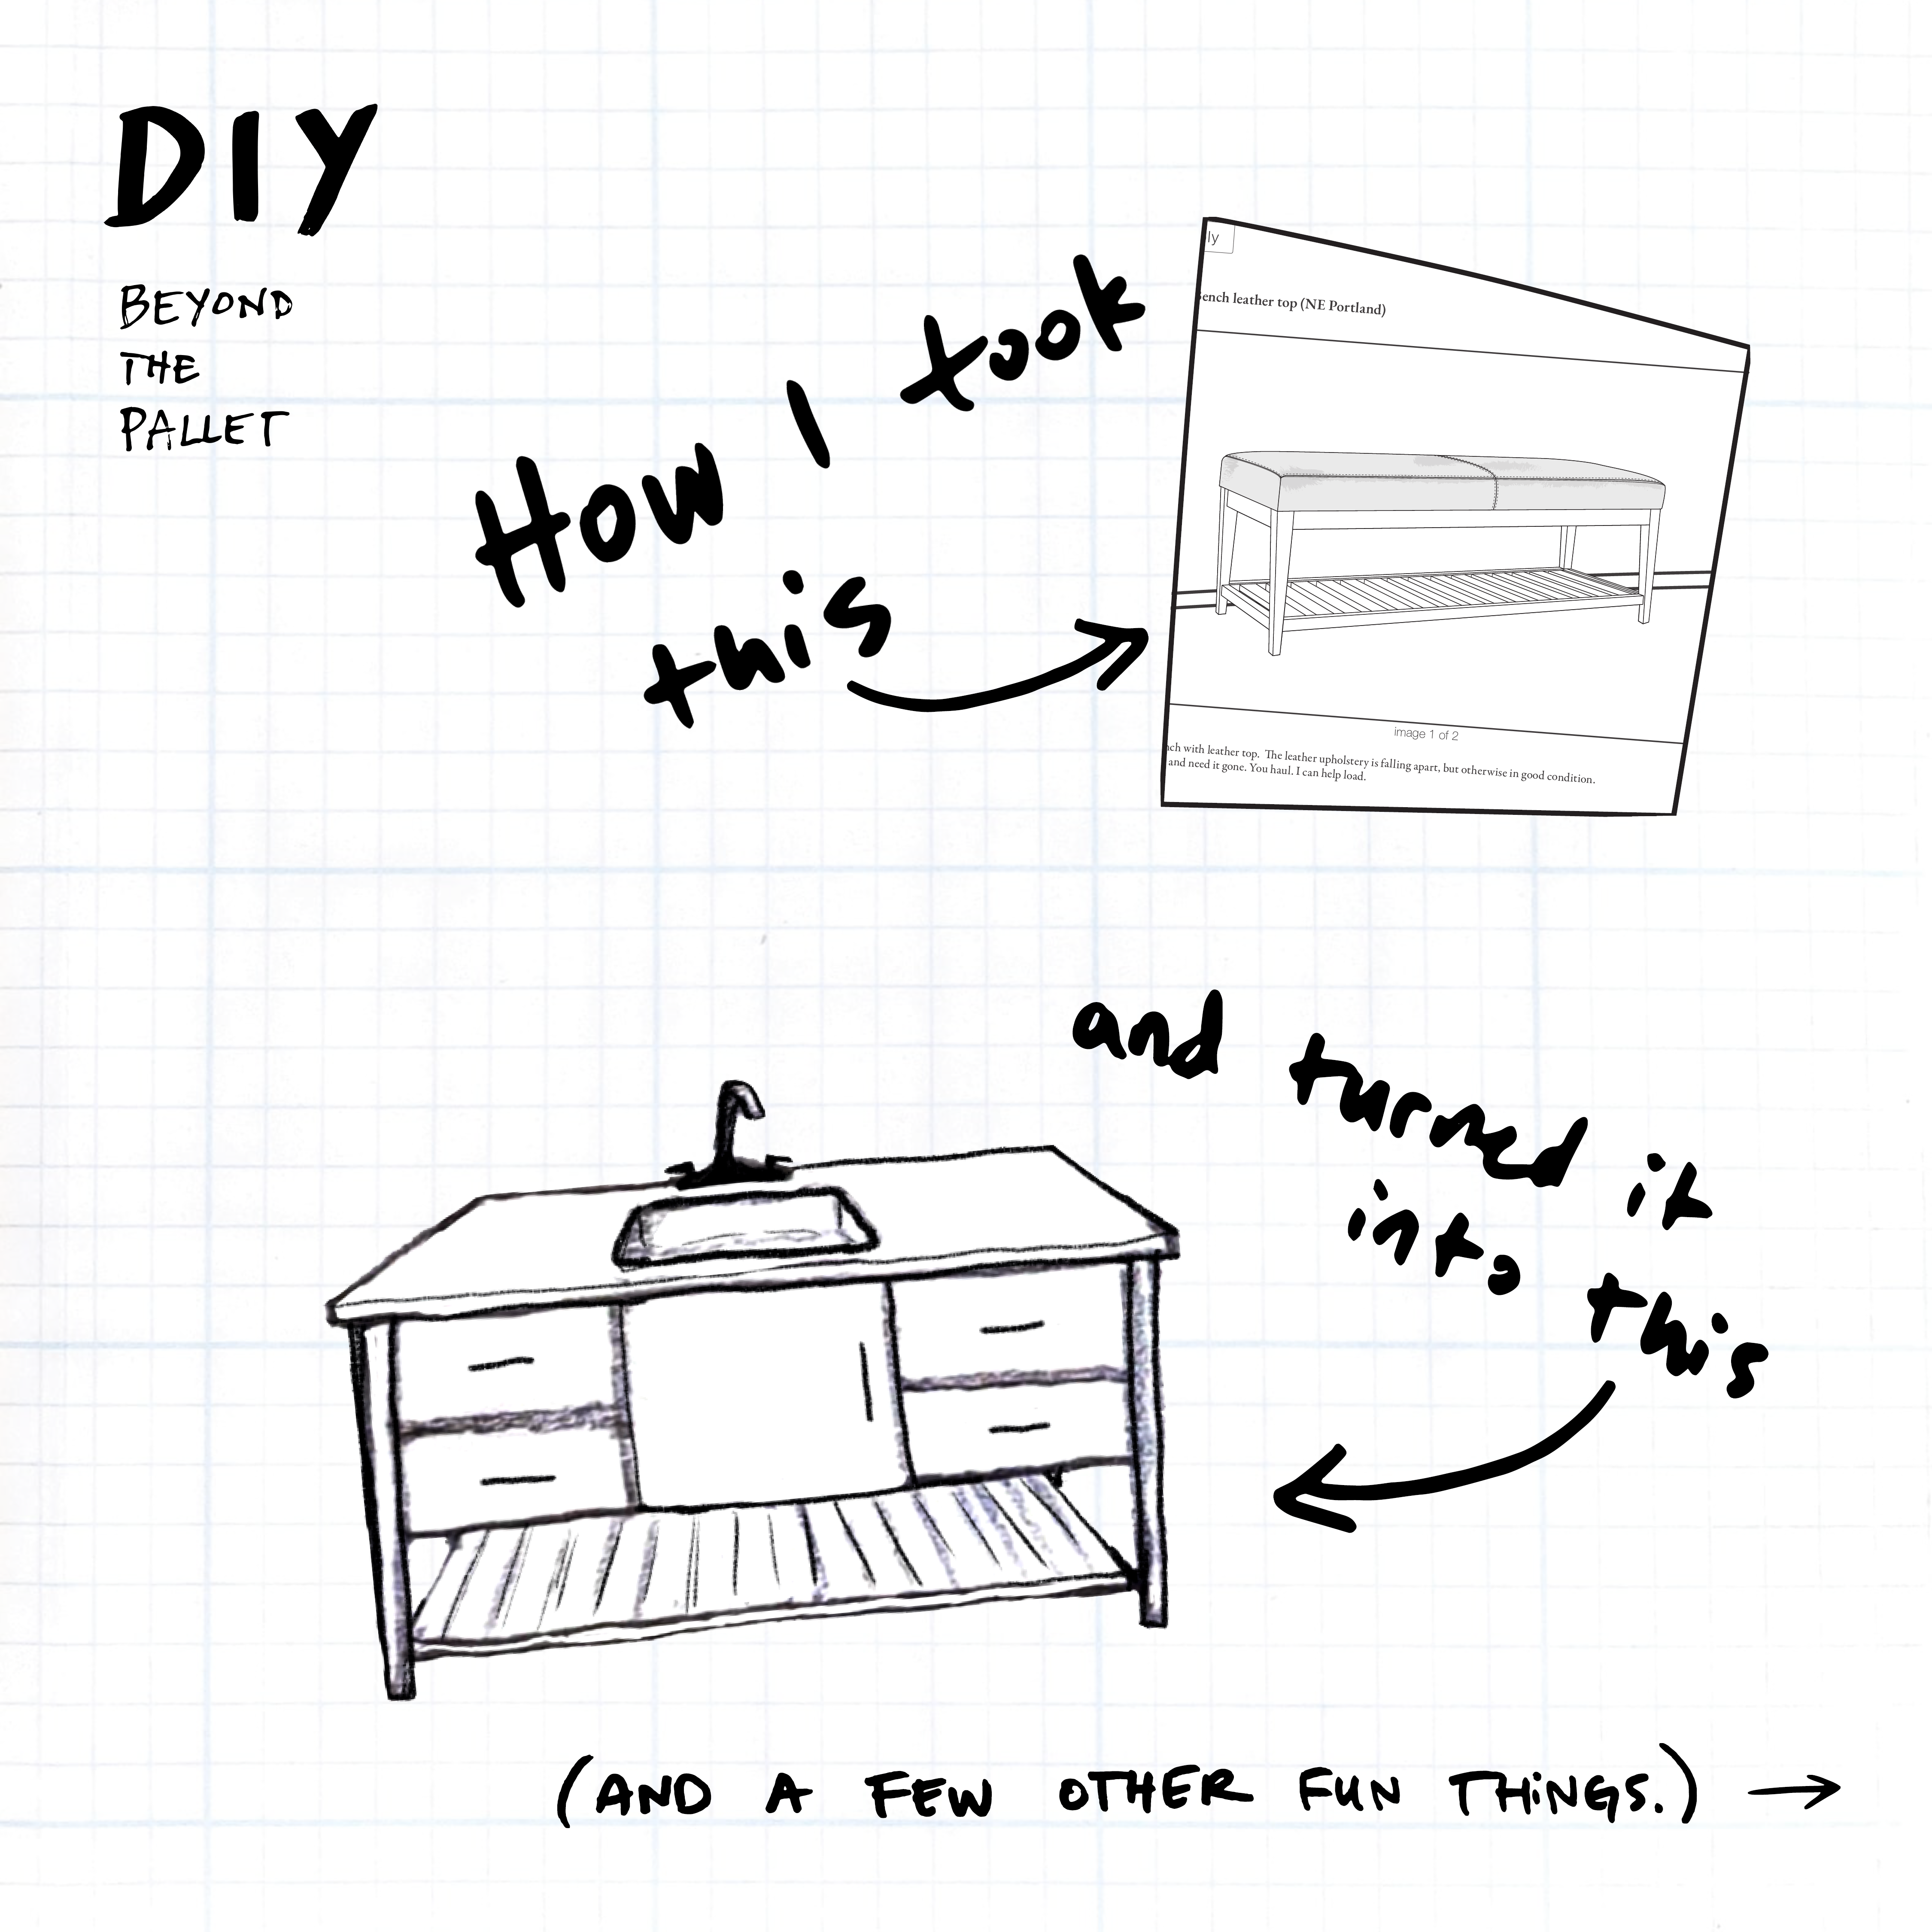 DIY
BEYOND
THE
PALLET
How I took
this
ly
ench leather top (NE Portland)
image 1 of 2
ch with leather top. The leather upholstery is falling apart, but otherwise in good condition.
and need it gone. You haul. I can help load.
and turned it
into this
(AND A FEW OTHER FUN THINGS.)